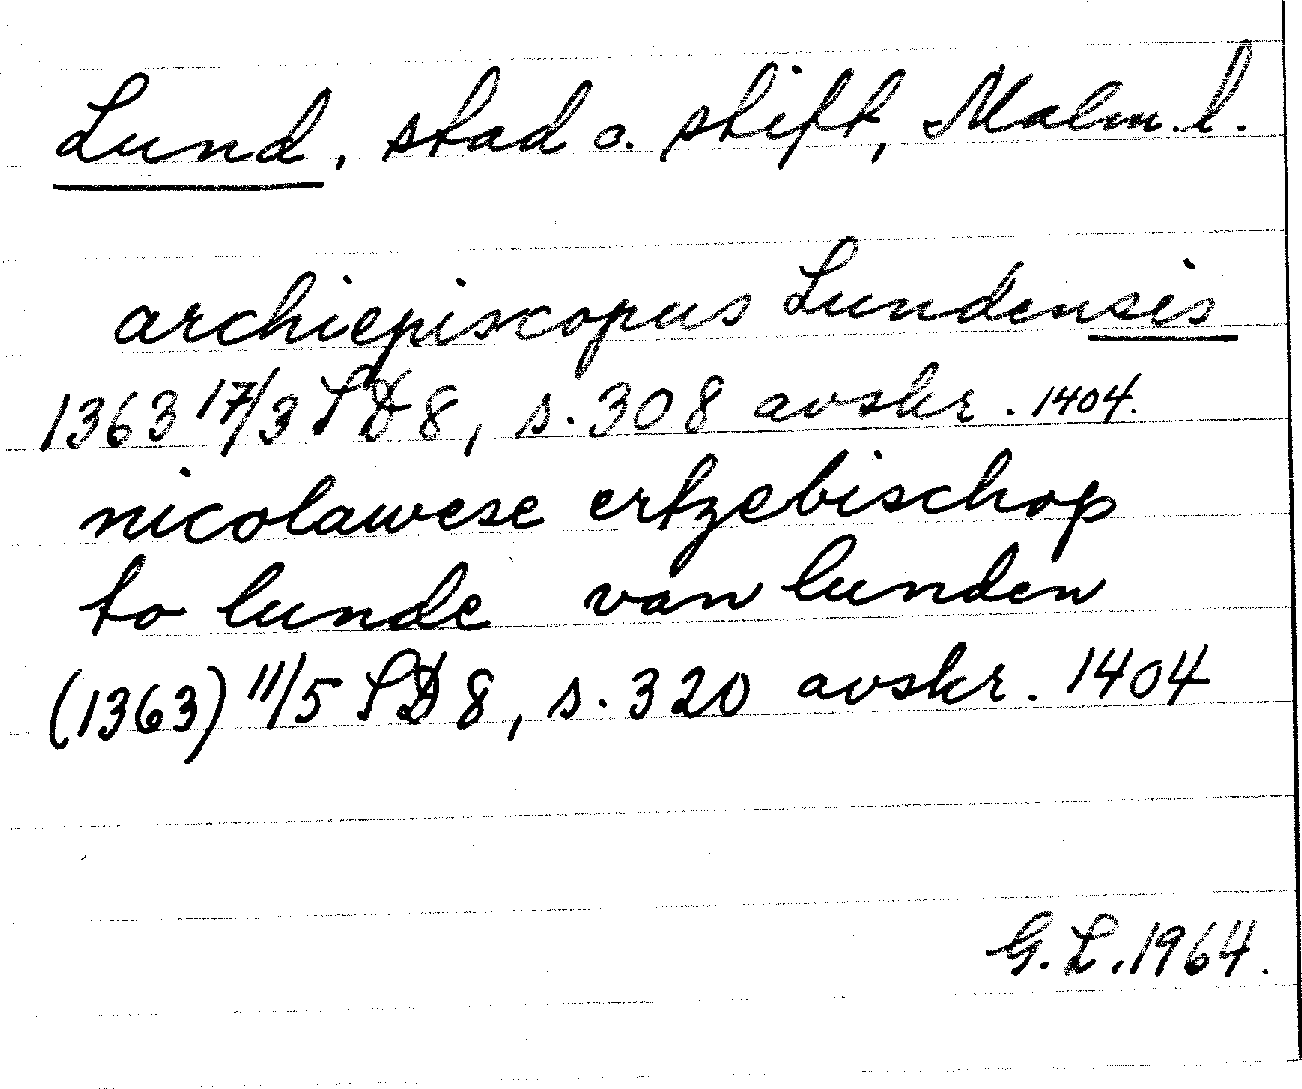 Lund, stad o. stift, Malm. l.
archiepiscopus Lundensis
1363 17/3 SD 8, s. 308 avskr. 1404.
nicolawese ertzebischop
to lunde van lunden
(1363) 11/5 SD 8, s. 320 avskr. 1404
G. L. 1964.